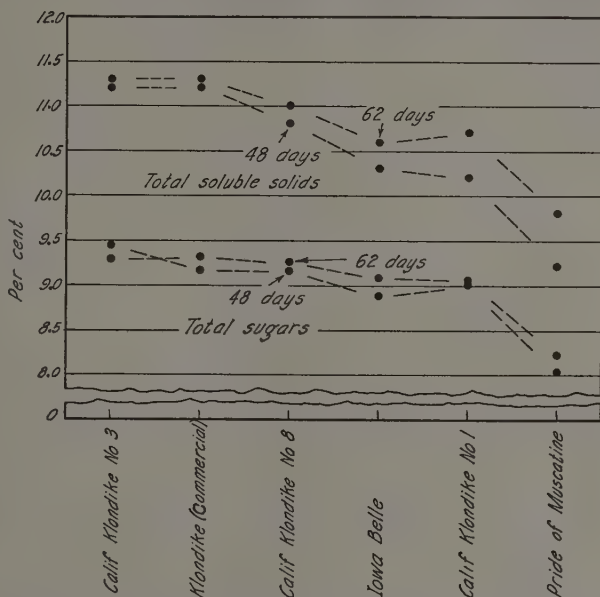 12.0
11.5
11.0
10.5
10.0
9.5
9.0
8.5
8.0
0
Per cent
62 days
48 days
Total soluble solids
62 days
48 days
Total sugars
Calif Klondike No 3
Klondike (Commercial)
Calif Klondike No 8
Iowa Belle
Calif Klondike No 1
Pride of Muscatine